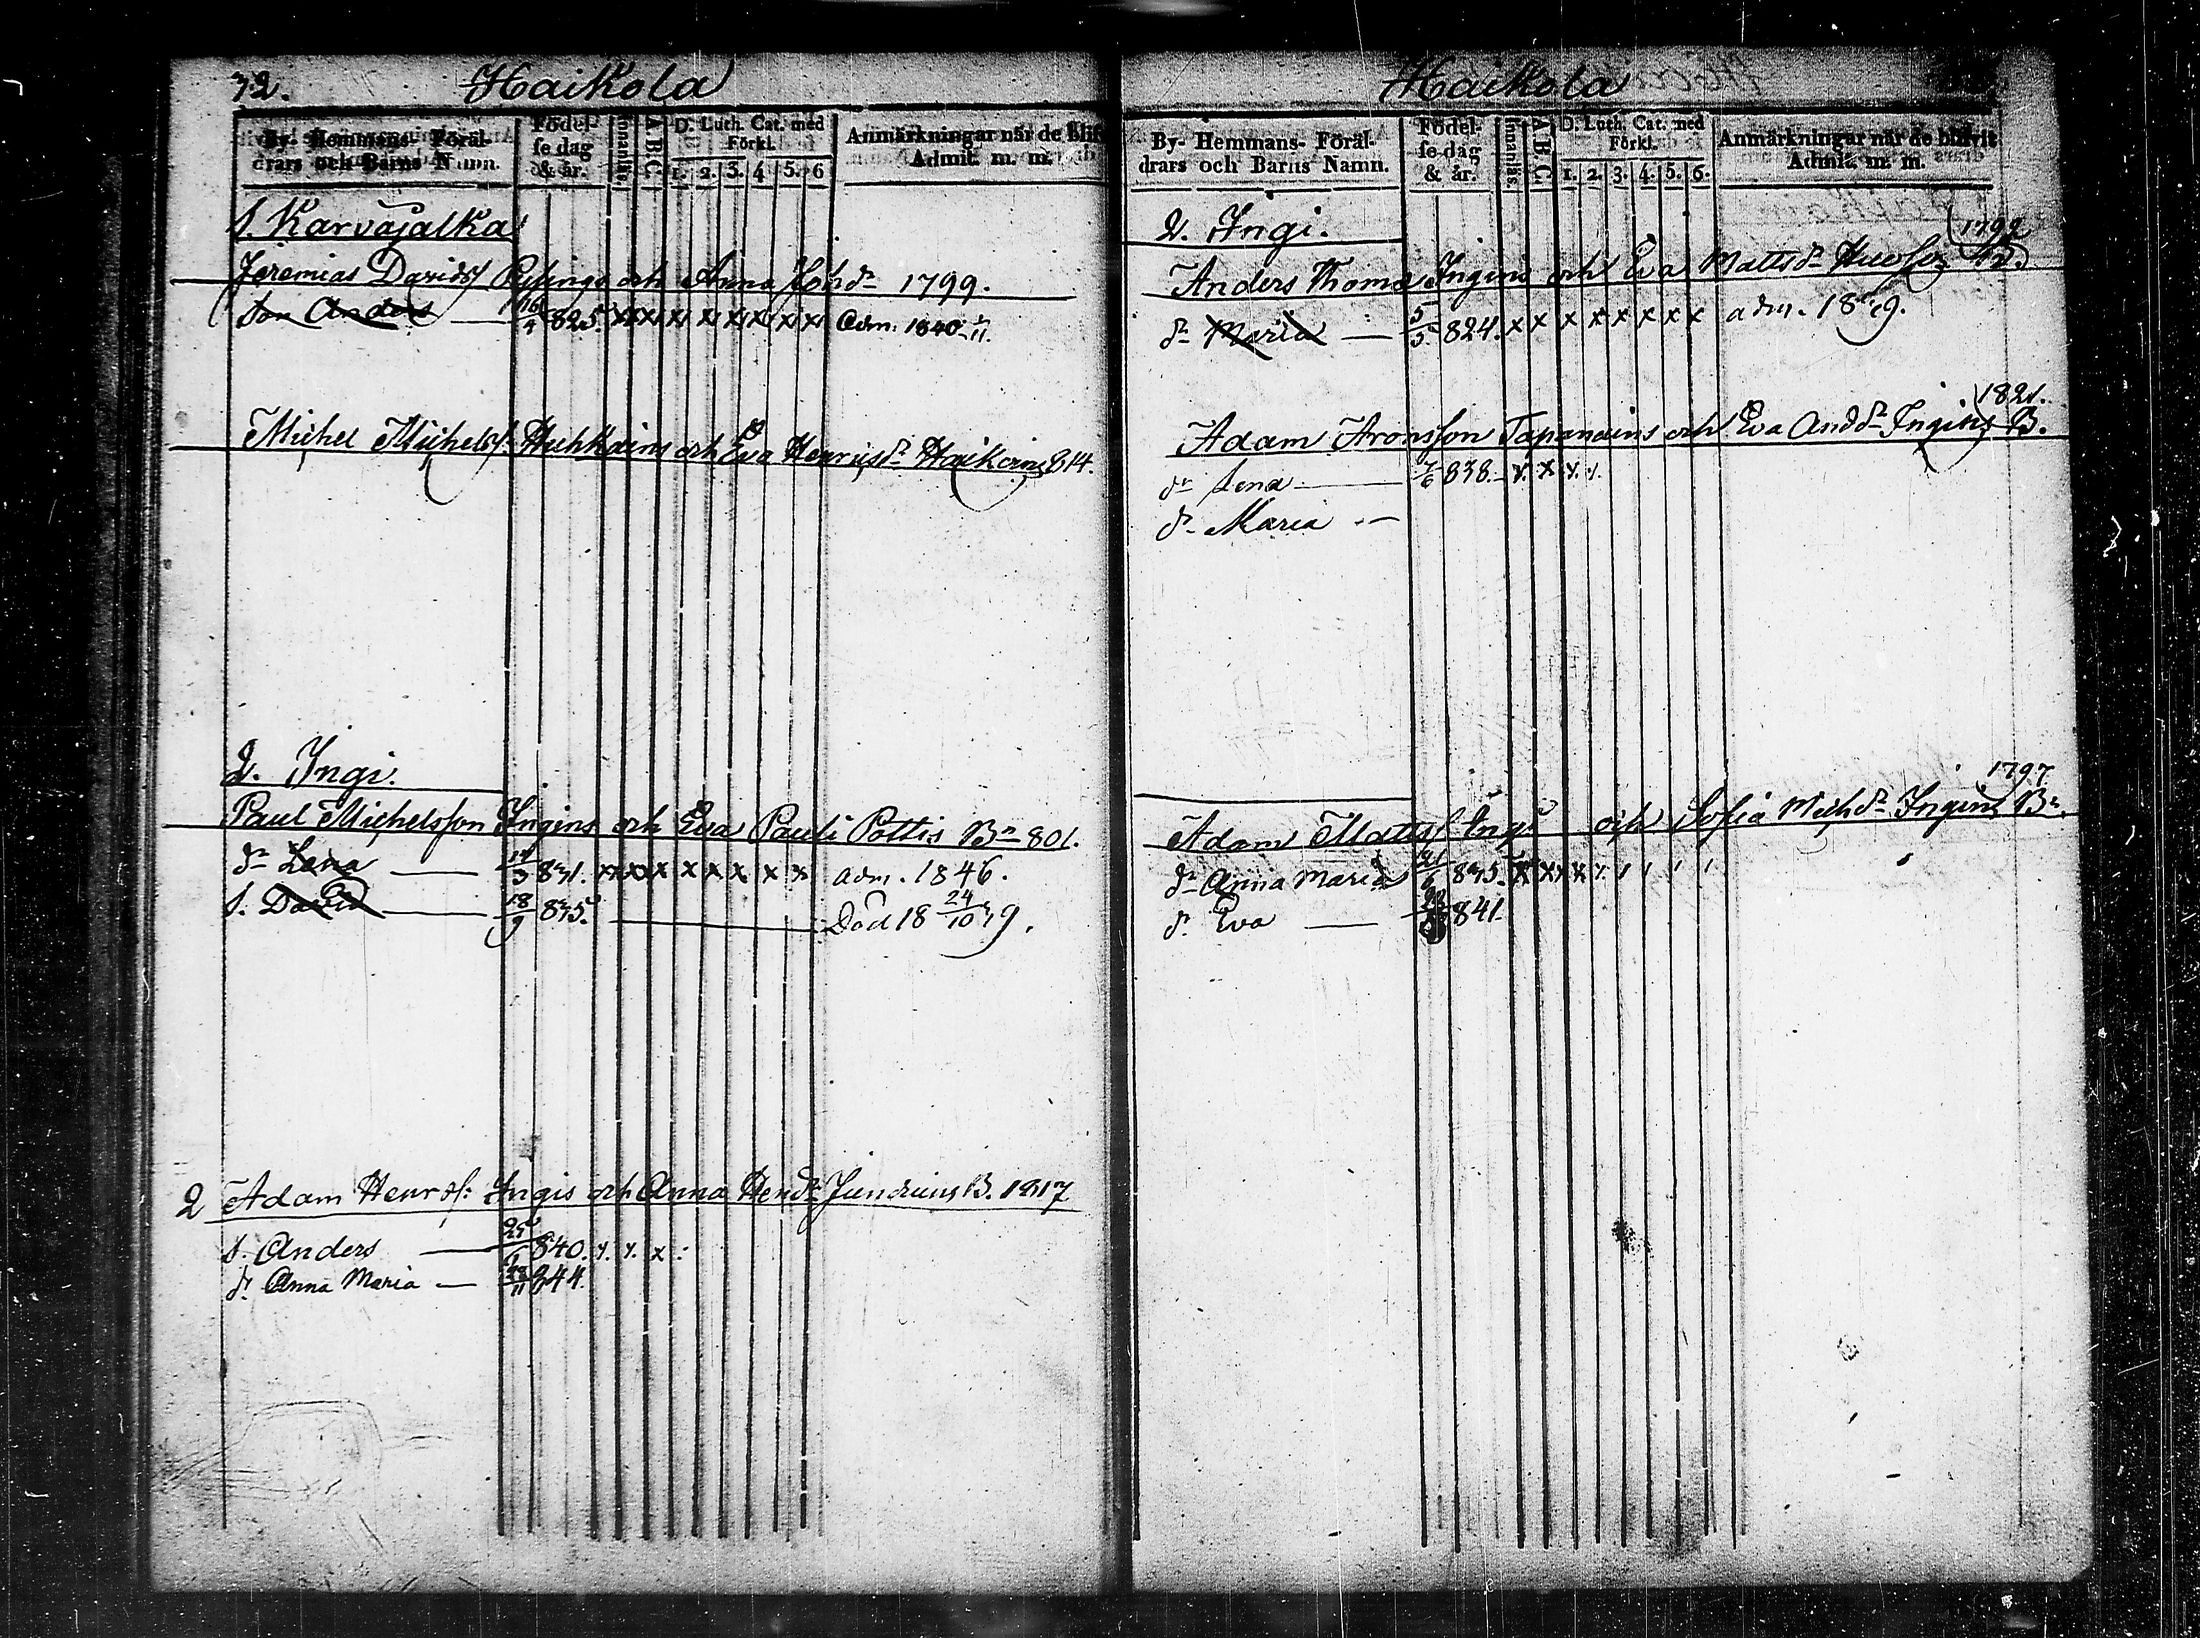 32. Haikola
By- Hemmans- Föräl-
drars och Barns Namn.
Födel-
se dag
& år.
Innanläs.
A B C.
D. Luth. Cat. med
Förkl.
1. 2. 3. 4 5. 6
Anmärkningar når de blif
Admit. m. m.
1. Karvasalka
Jeremias Davidsf och Anna Joh dr 1799.
Son Anders — 16/4 825. x x x x x x x x Adm: 1840
Michel Michelsf. Huhkains och Eva Henricsdr Haikoins 814.
2. Ingi.
Paul Michelsson Ingins och Eva Pauli Pottis Br 801.
dr Lena — 831. x x x x x x x x adm. 1846.
s. David — 18/9 835. — Död 18 24/10 39.
2 Adam Henrsf: Ingis och Anna Hendr B. 1817
s. Anders — 25/1 840. x. x. x.
dr Anna Maria — 844
Haikola
By- Hemmans- Föräl-
drars och Barns Namn.
Födel-
se dag
& år.
Innanläs.
A. B. C.
D. Luth. Cat. med
Förkl.
1. 2. 3. 4. 5. 6.
Anmärkningar når de blifvit
Admit. m. m.
2. Ingi.
1792
Anders Thomas Ingins och Eva Matts dr
dr Maria — 5/5 824. x x x x x x x x adm. 1839.
1821.
Adam Aronsson Tapanains och Eva And dr Ingins B.
dr Lena — 838. x. x x. x.
dr Maria —
1797
Adam Mattsf Ings och Sofia Mich dr Ingins Br.
dr Anna Maria 21/6 835. x x x x
dr Eva — 841.